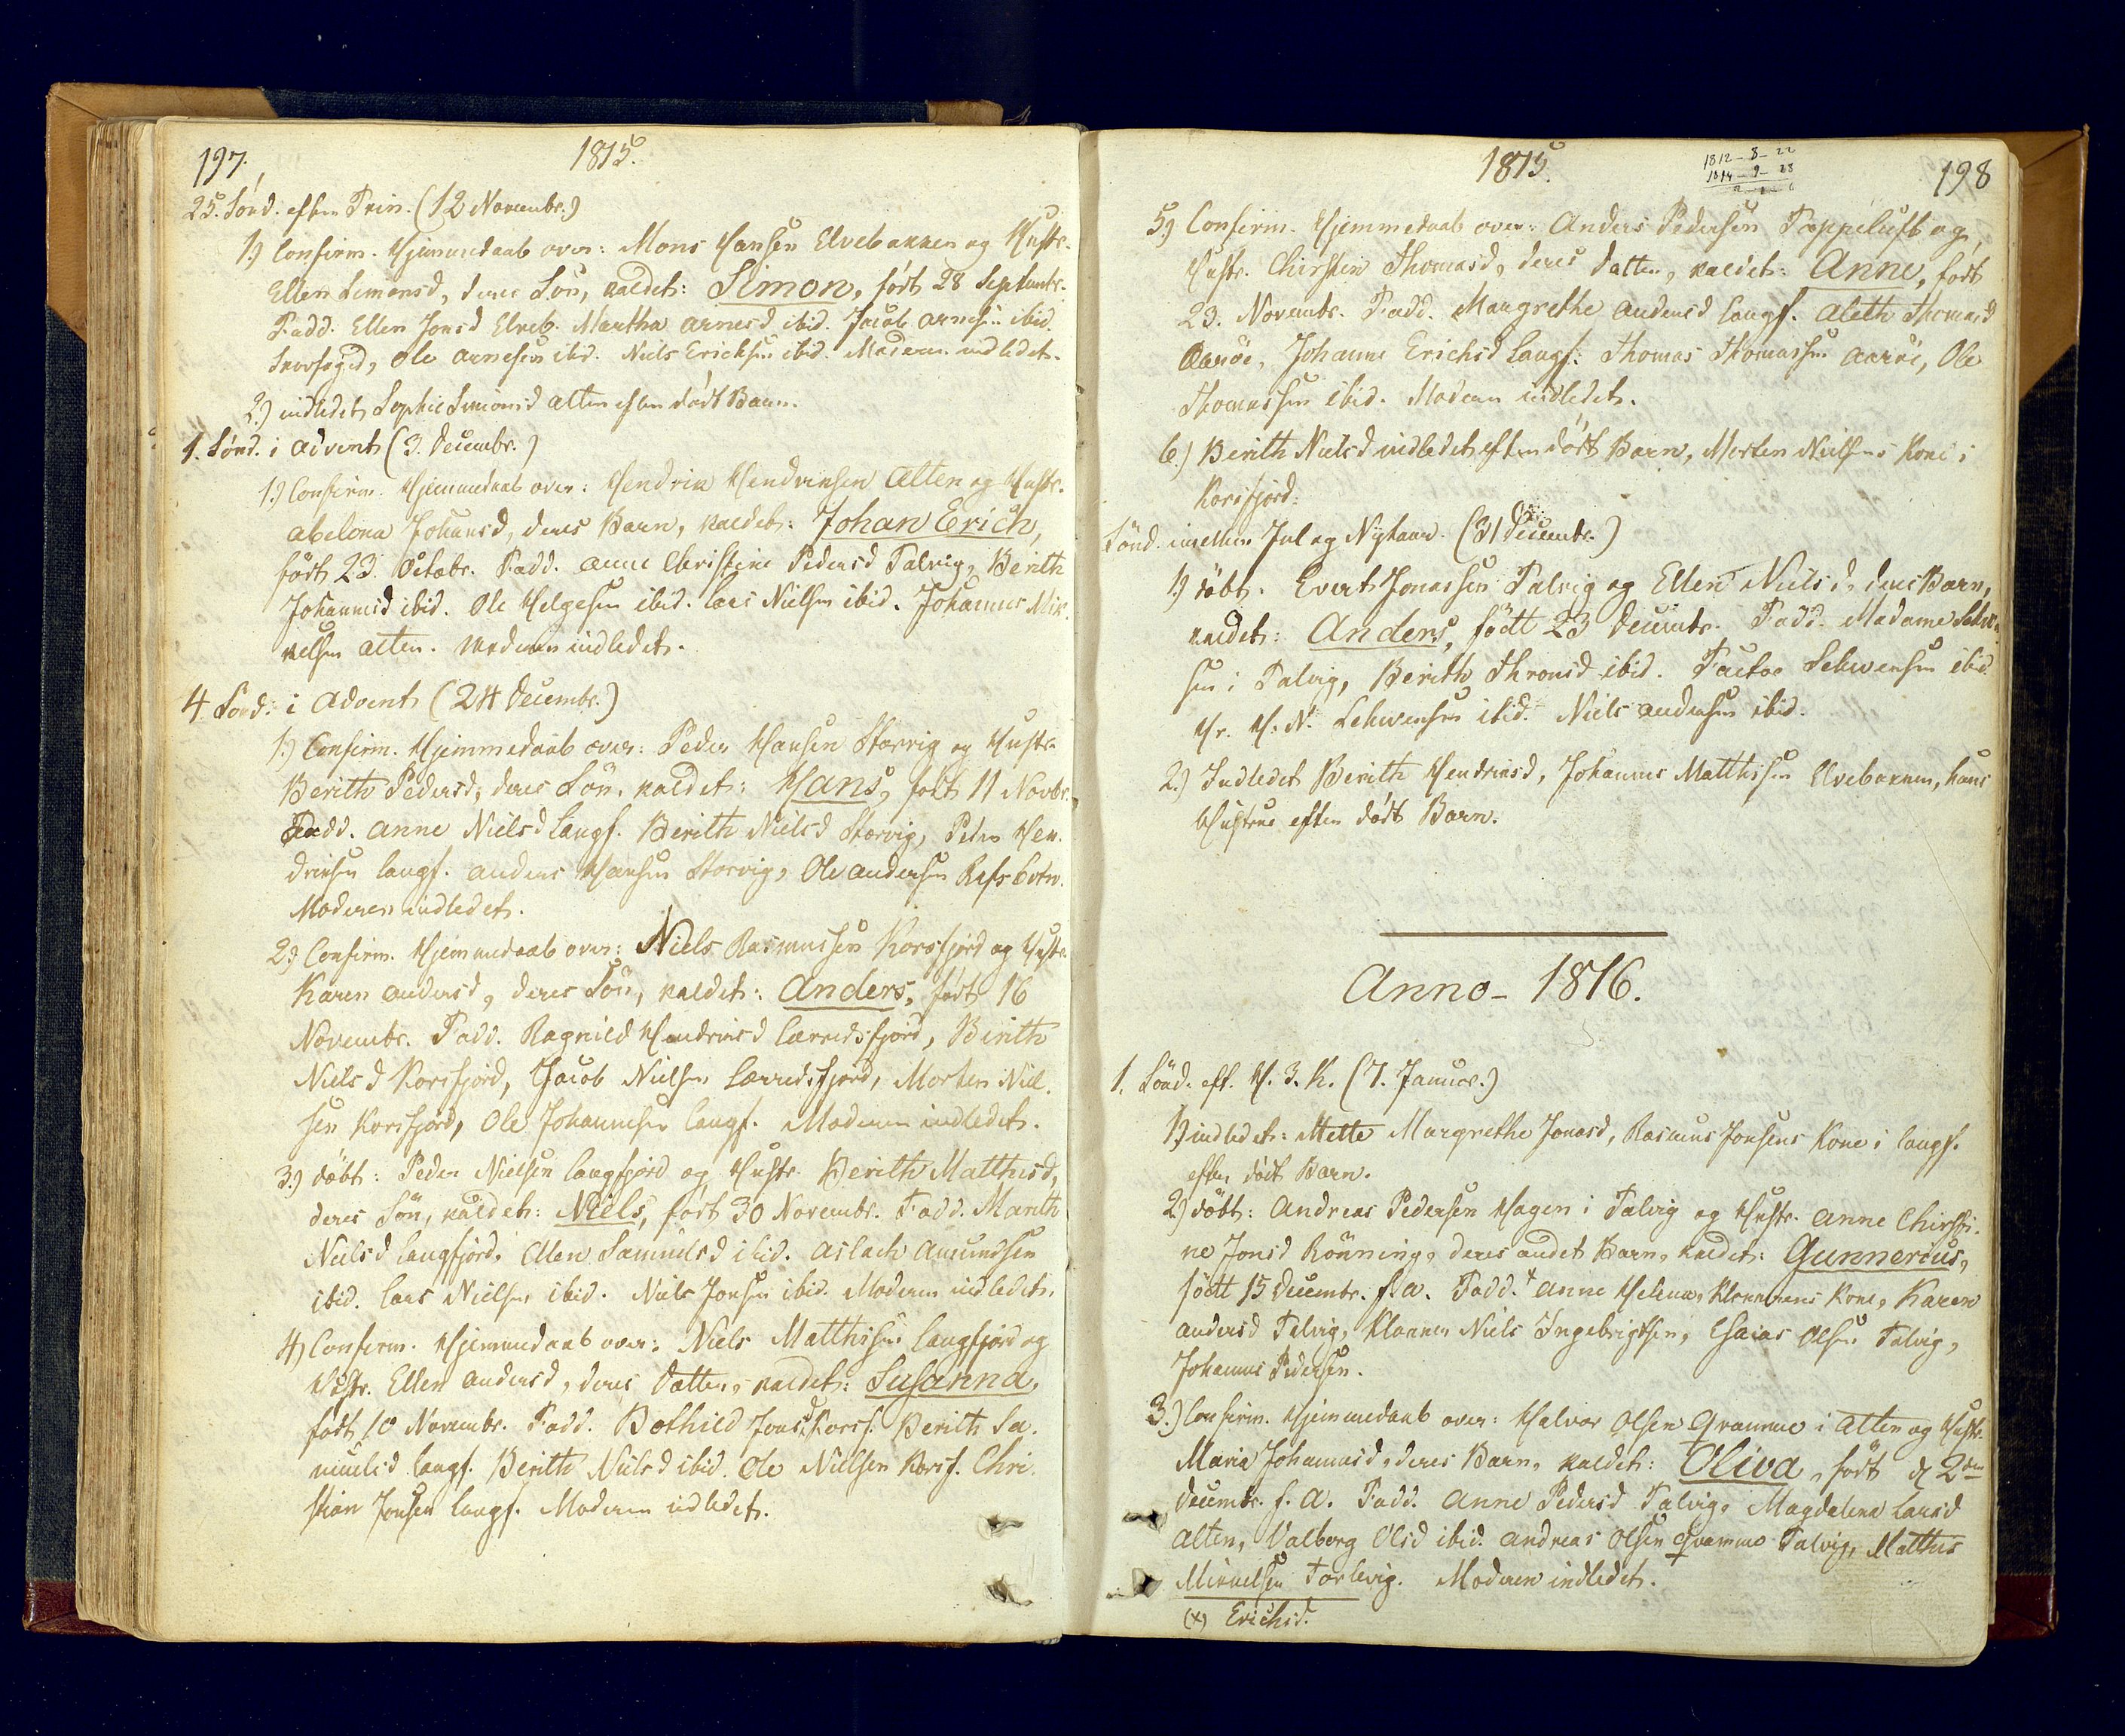 197.
1815.
25. Sönd. efter Trin. (12 Novembr.)
1.) Confirm. Hjemmedaab over: Mons Hansen Elvebakken og Hustr.
Ellen Simonsd, deres Sön, kaldet: Simon, födt 28 Septembr.
Fadd. Ellen Jonsd Elveb. Martha Arnesd ibid. Jacob Arnesen ibid.
Ole Arnesen ibid. Niels Ericksen ibid. Moderen indledet.
2.) indledet Sophie Simonsd Alten efter dödt Barn.
1. Sönd. i Advent (3. Decembr.)
1.) Confirm. Hjemmedaab over: Hendrik Hendriksen Alten og Hustr.
Abelona Johansd, deres Barn, kaldet: Johan Erich,
födt 23. Octobr. Fadd. Anne Christine Pedersd Talvig, Berith
Johannesd ibid. Ole Helgesen ibid. Lars Nielsen ibid. Johannes Mik-
kelsen Alten. Moderen indledet.
4. Sönd: i Advent (24 Decembr.)
1.) Confirm. Hjemmedaab over: Peder Hansen Storvig og Hustr.
Berith Pedersd, deres Sön, kaldet: Hans, födt 11 Novbr.
Fadd. Anne Nielsd Langf. Berith Nielsd Storvig, Peder Hen-
driksen Langf. Anders Hansen Storvig, Ole Andersen Refsbotn.
Moderen indledet.
2.) Confirm. Hjemmedaab over: Niels Rasmussen Korsfjord og Hustr.
Karen Andersd, deres Sön, kaldet: Anders, födt 16
Novembr. Fadd. Ragnild Hendriksd Lærredsfjord, Berith
Nielsd Korsfjord, Jacob Nielsen Lærredsfjord, Morten Niel-
sen Korsfjord, Ole Johannesen Langf. Moderen indledet.
3.) döbt: Peder Nielsen Langfjord og Hustr. Berith Matthisd,
deres Sön, kaldet: Niels, födt 30 Novembr. Fadd. Marith
Nielsd Langfjord. Ellen Samuelsd ibid. Aslach Amundsen
ibid. Lars Nielsen ibid. Niels Jonsen ibid. Moderen indledet.
4) Confirm. Hjemmedaab over: Niels Matthisen Langfjord og
Hustr. Ellen Andersd, deres Datter, kaldet: Susanna,
födt 10 Novembr. Fadd. Bothild Jonsd Korsf. Berith Sa-
muelsd Langf. Berith Nielsd ibid. Ole Nielsen Korsf. Chri-
stian Jonsen Langf. Moderen indledet.
1815.
1812 - 8 - 22
1814 - 9 - 28
2 - 1 - 6
198
5) Confirm. Hjemmedaab over: Anders Pedersen Toppeluft og
Hustr. Chirsten Thomasd, deres datter, kaldet: Anne, födt
23. Novembr. Fadd. Margrethe Andersd Langf. Aleth Thomasd
Aaröe, Johanne Erichsd Langf: Thomas Thomassen Aaröe, Ole
Thomassen ibid. Moderen indledet.
6.) Berith Nielsd indledet efter dödt Barn, Morten Nielsens Kone i
Korsfjord.
Sönd. imellem Jul og Nytaar. (31 Decembr.)
1) döbt. Evert Jonassen Talvig og Ellen Nielsd, deres Barn,
kaldet: Anders, födt 23 Decembr. Fadd. Madame Schwen-
sen i Talvig, Berith Thronsd ibid. Factor Schwensen ibid.
Hr. H. N. Schwensen ibid. Niels Andersen ibid.
2.) Indledet Berith Hendriksd, Johannes Matthisen Elvebakken, hans
Hustrue efter dödt Barn.
Anno - 1816.
1. Sönd. eft. H. 3. K. (7. Januar.)
1) indledet: Mette Margrethe Jonasd, Rasmus Jonsens Kone i Langf.
efter dödt Barn.
2) döbt: Andreas Pedersen Hagen i Talvig og Hustr. Anne Chirsti-
ne Jonsd Rönning, deres andet Barn, kaldet: Gunnerius,
födt 15 Decembr. f. a. Fadd. + Anne Helena, Klokkerens Kone, Karen
Andersd Talvig, Klokker Niels Ingebrigtsen, Esaias Olsen Talvig,
Johannes Pedersen.
3.) Confirm. Hjemmedaab over: Halvor Olsen Qvamme i Alten og Hustr.
Maria Johannesd, deres Barn, kaldet: Oliva, födt d 2den
Decembr. f. a. Fadd. Anne Pedersd Talvig, Magdalena Larsd
Alten, Valborg Olsd ibid. Andreas Olsen Qvamme Talvig, Matthis
Mikkelsen Torlevig. Moderen indledet.
(x) Erichsd.